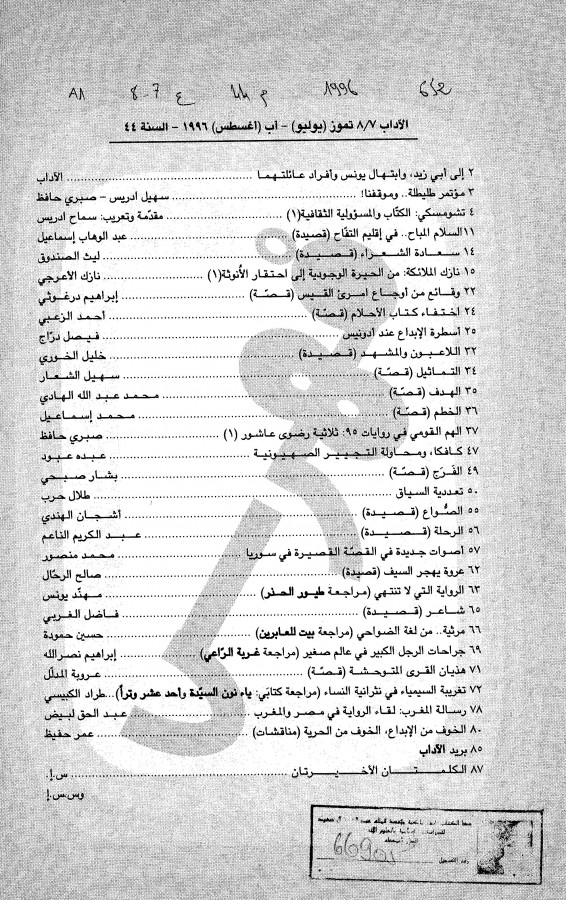 652 1996 م 44 ع 7-8 A1
الآداب ٨/٧ تموز (يوليو) - آب (أغسطس) ١٩٩٦ - السنة ٤٤
٢ إلى أبي زيد، وابتهال يونس وأفراد عائلتهما ........ الآداب
٣ مؤتمر طليطلة.. وموقفنا! ........ سهيل ادريس - صبري حافظ
٤ تشومسكي: الكتّاب والمسؤولية الثقافية(١) ........ مقدّمة وتعريب: سماح ادريس
١١ السلام المباح.. في إقليم التفّاح (قصيدة) ........ عبد الوهاب إسماعيل
١٤ سعادة الشعراء (قصيدة) ........ ليث الصندوق
١٥ نازك الملائكة: من الحيرة الوجودية إلى احتقار الأنوثة(١) ........ نازك الأعرجي
٢٢ وقائع من أوجاع امرئ القيس (قصّة) ........ إبراهيم درغوثي
٢٤ اختفاء كتاب الأحلام (قصّة) ........ أحمد الزعبي
٢٥ أسطرة الإبداع عند أدونيس ........ فيصل درّاج
٣٢ اللاعبون والمشهد (قصيدة) ........ خليل الخوري
٣٤ التماثيل (قصّة) ........ سهيل الشعار
٣٥ الهدف (قصّة) ........ محمد عبد الله الهادي
٣٦ الخطم (قصّة) ........ محمد إسماعيل
٣٧ الهم القومي في روايات ٩٥: ثلاثية رضوى عاشور (١) ........ صبري حافظ
٤٧ كافكا، ومحاولة التجيير الصهيونية ........ عبده عبود
٤٩ الفَرَج (قصّة) ........ بشار صبحي
٥٠ تعددية السياق ........ طلال حرب
٥٥ الصُّواع (قصيدة) ........ أشجان الهندي
٥٦ الرحلة (قصيدة) ........ عبد الكريم الناعم
٥٧ أصوات جديدة في القصّة القصيرة في سوريا ........ محمد منصور
٦٢ عروة يهجر السيف (قصيدة) ........ صالح الرحّال
٦٣ الرواية التي لا تنتهي (مراجعة طيور الحذر) ........ مهنّد يونس
٦٥ شاعر (قصيدة) ........ فاضل الغربي
٦٦ مرثية.. من لغة الضواحي (مراجعة بيت للعابرين) ........ حسين حمودة
٦٩ جراحات الرجل الكبير في عالم صغير (مراجعة غربة الرّاعي) ........ إبراهيم نصرالله
٧١ هذيان القرى المتوحشة (قصّة) ........ عروبة المدلّل
٧٢ تغريبة السيمياء في نثرانية النساء (مراجعة كتابَي: ياء نون السيّدة وأحد عشر وتراً)... طراد الكبيسي
٧٨ رسالة المغرب: لقاء الرواية في مصر والمغرب ........ عبد الحق لبيض
٨٠ الخوف من الإبداع، الخوف من الحرية (مناقشات) ........ عمر حفيظ
٨٥ بريد الآداب
٨٧ الكلمتان الأخيرتان ........ س.إ.
وس.س.إ
فهرس
رقم التسجيل